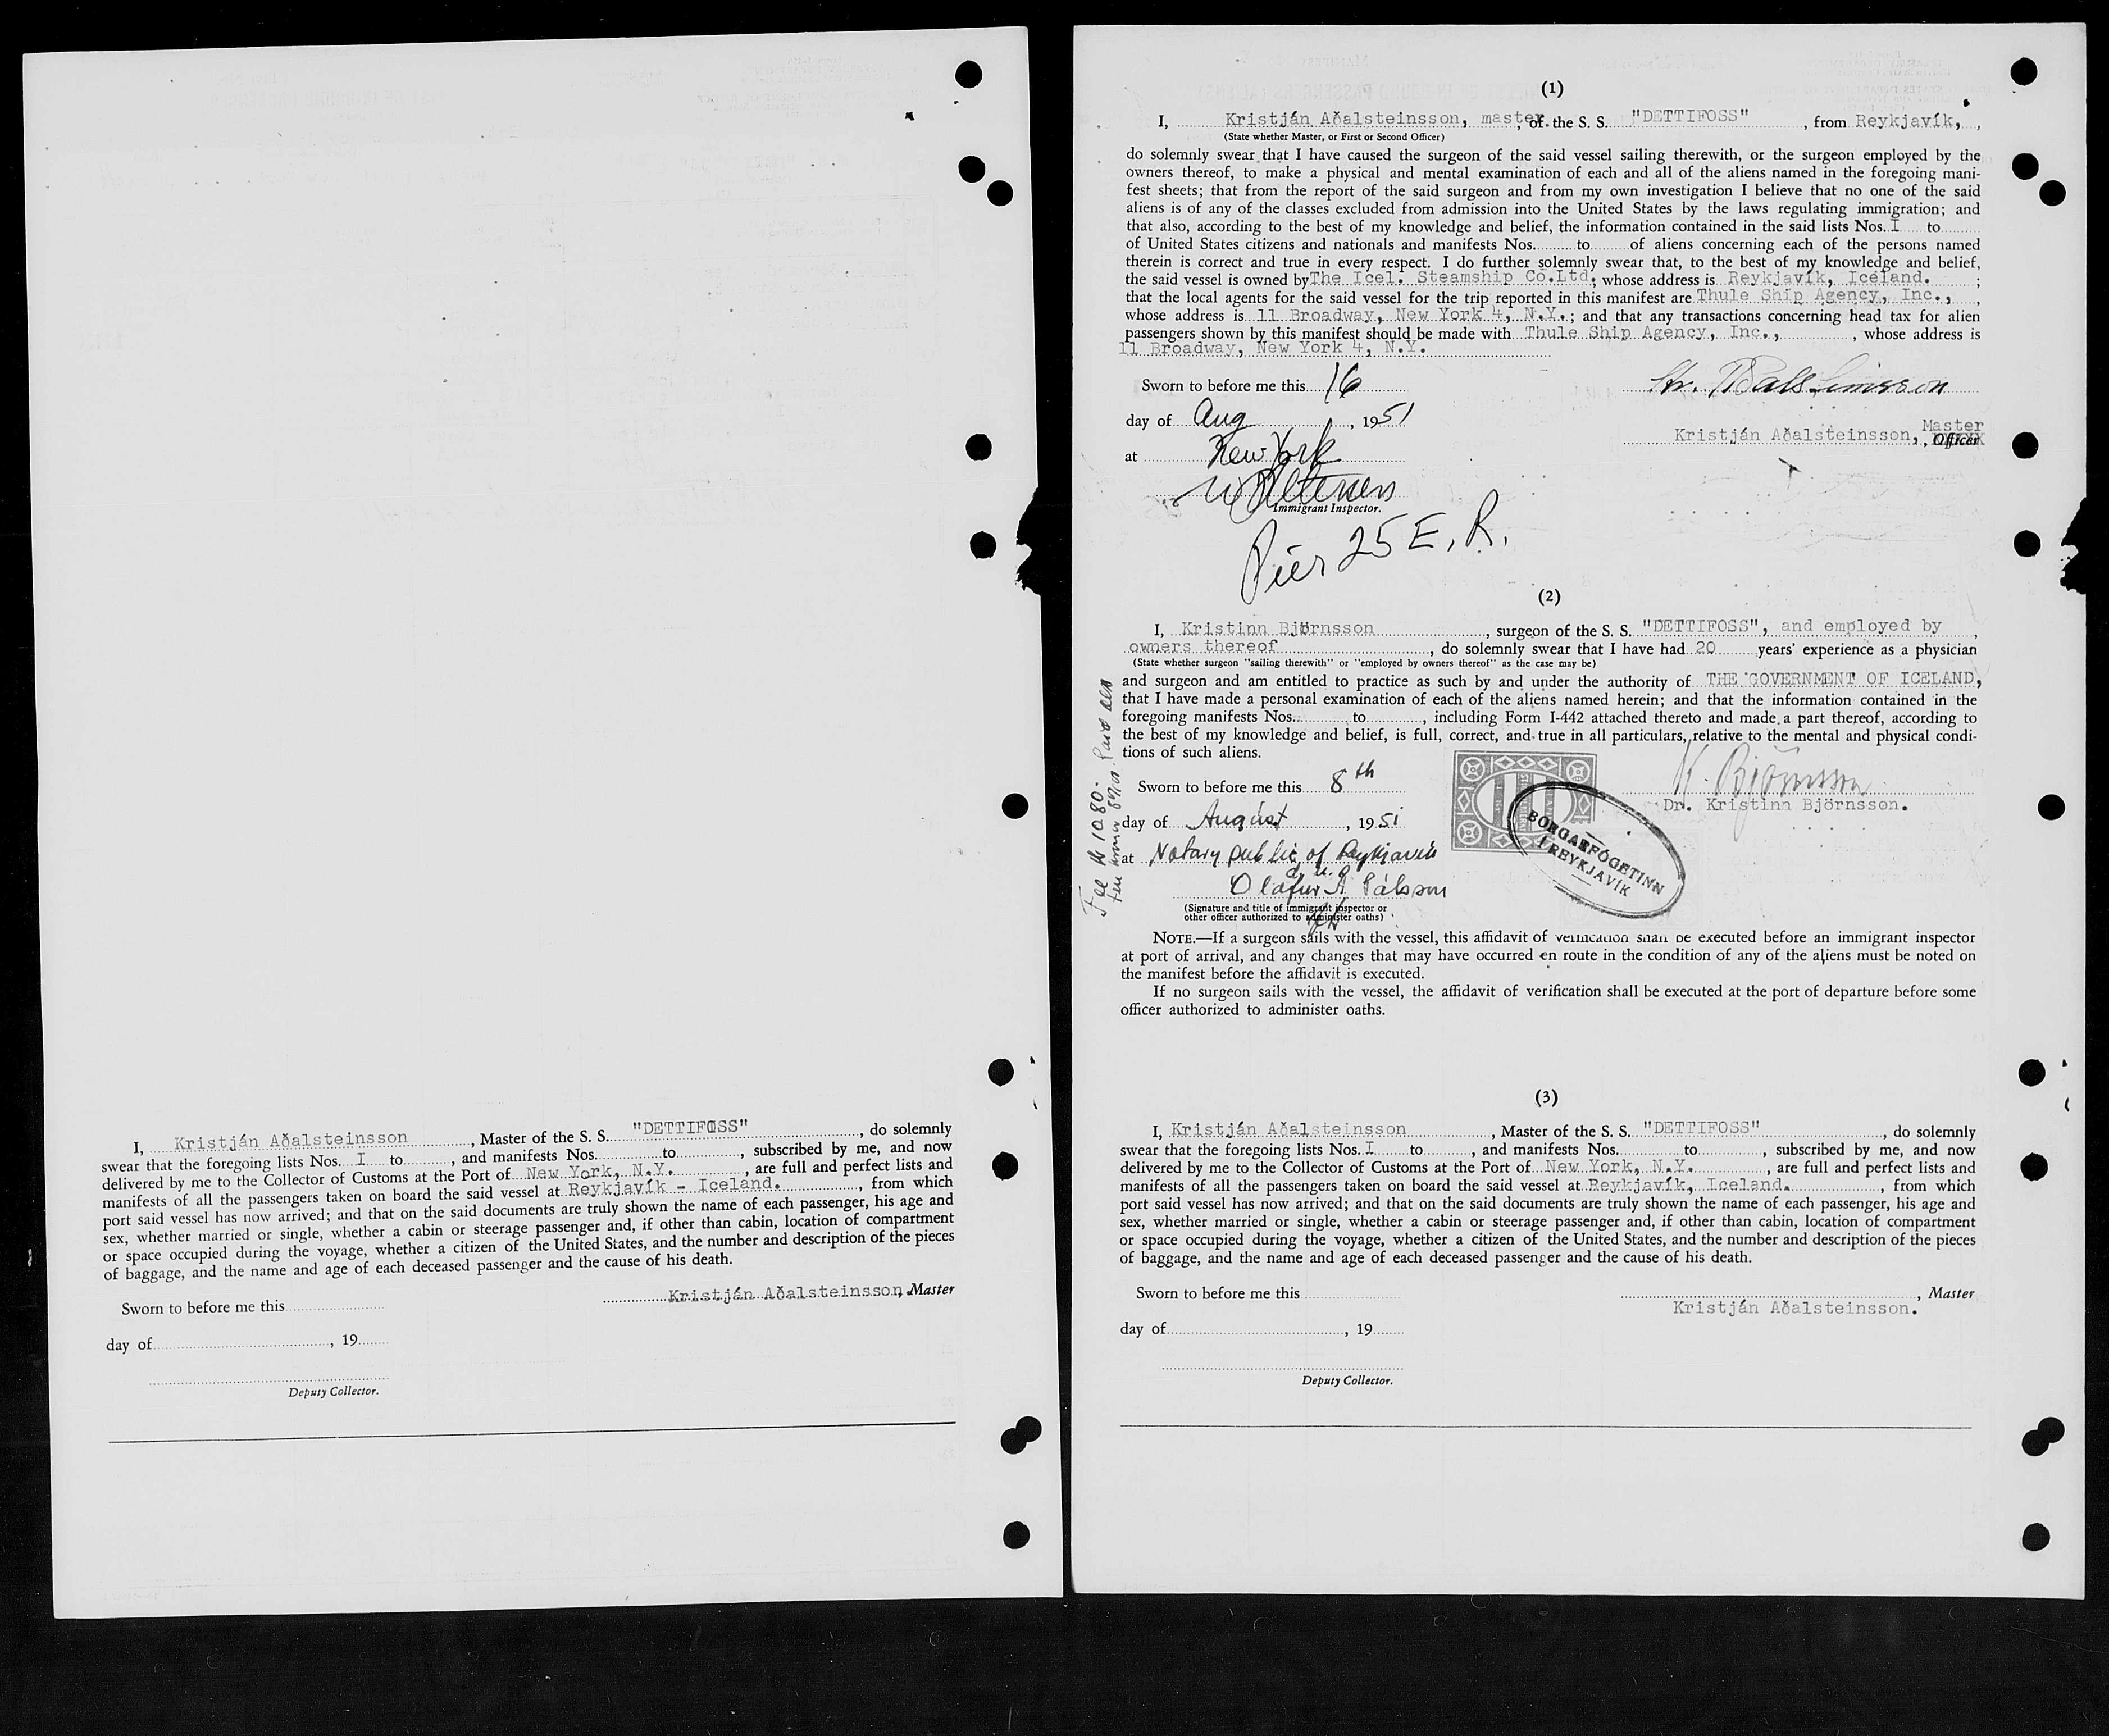 I, Kristján Aðalsteinsson, Master of the S. S. "DETTIFOSS", do solemnly
swear that the foregoing lists Nos. I to, and manifests Nos. to, subscribed by me, and now
delivered by me to the Collector of Customs at the Port of New York, N.Y., are full and perfect lists and
manifests of all the passengers taken on board the said vessel at Reykjavík - Iceland., from which
port said vessel has now arrived; and that on the said documents are truly shown the name of each passenger, his age and
sex, whether married or single, whether a cabin or steerage passenger and, if other than cabin, location of compartment
or space occupied during the voyage, whether a citizen of the United States, and the number and description of the pieces
of baggage, and the name and age of each deceased passenger and the cause of his death.
Kristján Aðalsteinsson, Master
Sworn to before me this
day of, 19
Deputy Collector.
(1)
I, Kristján Aðalsteinsson, master, of the S. S. "DETTIFOSS", from Reykjavík,,
(State whether Master, or First or Second Officer)
do solemnly swear that I have caused the surgeon of the said vessel sailing therewith, or the surgeon employed by the
owners thereof, to make a physical and mental examination of each and all of the aliens named in the foregoing mani-
fest sheets; that from the report of the said surgeon and from my own investigation I believe that no one of the said
aliens is of any of the classes excluded from admission into the United States by the laws regulating immigration; and
that also, according to the best of my knowledge and belief, the information contained in the said lists Nos. I to
of United States citizens and nationals and manifests Nos. to of aliens concerning each of the persons named
therein is correct and true in every respect. I do further solemnly swear that, to the best of my knowledge and belief,
the said vessel is owned by The Icel. Steamship Co.Ltd, whose address is Reykjavík, Iceland. ;
that the local agents for the said vessel for the trip reported in this manifest are Thule Ship Agency, Inc., ,
whose address is 11 Broadway, New York 4, N.Y.; and that any transactions concerning head tax for alien
passengers shown by this manifest should be made with Thule Ship Agency, Inc., , whose address is
11 Broadway, New York 4, N.Y.
Sworn to before me this 16
day of Aug, 1951
Kristján Aðalsteinsson, Master, Officer
at New York
Immigrant Inspector.
Pier 25 E. R.
(2)
I, Kristinn Björnsson, surgeon of the S. S. "DETTIFOSS", and employed by,
owners thereof, do solemnly swear that I have had 20 years' experience as a physician
(State whether surgeon "sailing therewith" or "employed by owners thereof" as the case may be)
and surgeon and am entitled to practice as such by and under the authority of THE GOVERNMENT OF ICELAND,
that I have made a personal examination of each of the aliens named herein; and that the information contained in the
foregoing manifests Nos. to, including Form I-442 attached thereto and made a part thereof, according to
the best of my knowledge and belief, is full, correct, and true in all particulars, relative to the mental and physical condi-
tions of such aliens.
K. Björnsson
Sworn to before me this 8th
Dr. Kristinn Björnsson.
day of August, 1951
BORGARFÓGETINN
Í REYKJAVÍK
at Notary public of Reykjavik
Olafur A Pálsson
(Signature and title of immigrant inspector or
other officer authorized to administer oaths)
NOTE.—If a surgeon sails with the vessel, this affidavit of verification shall be executed before an immigrant inspector
at port of arrival, and any changes that may have occurred en route in the condition of any of the aliens must be noted on
the manifest before the affidavit is executed.
If no surgeon sails with the vessel, the affidavit of verification shall be executed at the port of departure before some
officer authorized to administer oaths.
(3)
I, Kristján Aðalsteinsson, Master of the S. S. "DETTIFOSS", do solemnly
swear that the foregoing lists Nos. I to, and manifests Nos. to, subscribed by me, and now
delivered by me to the Collector of Customs at the Port of New York, N.Y., are full and perfect lists and
manifests of all the passengers taken on board the said vessel at Reykjavík, Iceland., from which
port said vessel has now arrived; and that on the said documents are truly shown the name of each passenger, his age and
sex, whether married or single, whether a cabin or steerage passenger and, if other than cabin, location of compartment
or space occupied during the voyage, whether a citizen of the United States, and the number and description of the pieces
of baggage, and the name and age of each deceased passenger and the cause of his death.
Sworn to before me this
, Master
Kristján Aðalsteinsson.
day of, 19
Deputy Collector.